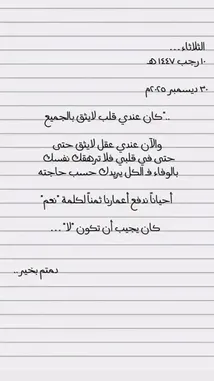 الثلاثاء...
١٠ رجب ١٤٤٧ هـ
٣٠ ديسمبر ٢٠٢٥م
.."كان عندي قلب لايثق بالجميع
والآن عندي عقل لايثق حتى
حتى في قلبي فلا ترهقك نفسك
بالوفاء فـ الكل يريدك حسب حاجته
أحياناً ندفع أعمارنا ثمناً لكلمة "نعم"
كان يجيب أن تكون "لا" ...
دمتم بخير..